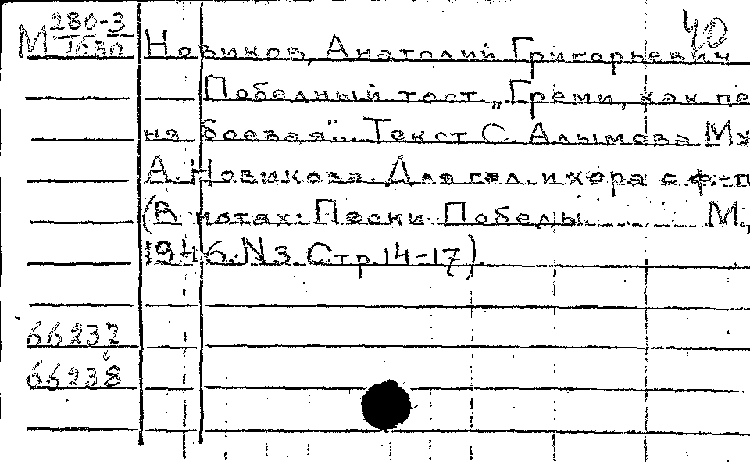 М 280-3/1630
40
Новиков, Анатолий Григорьевич
Победный тост „Греми, как пе
ня боевая"... Текст С. Алымова Му
А. Новикова. Для гол. и хора с ф.-п
(В нотах: Песни Победы........ М.,
1946. N3 Стр 14-17).
66237
66238